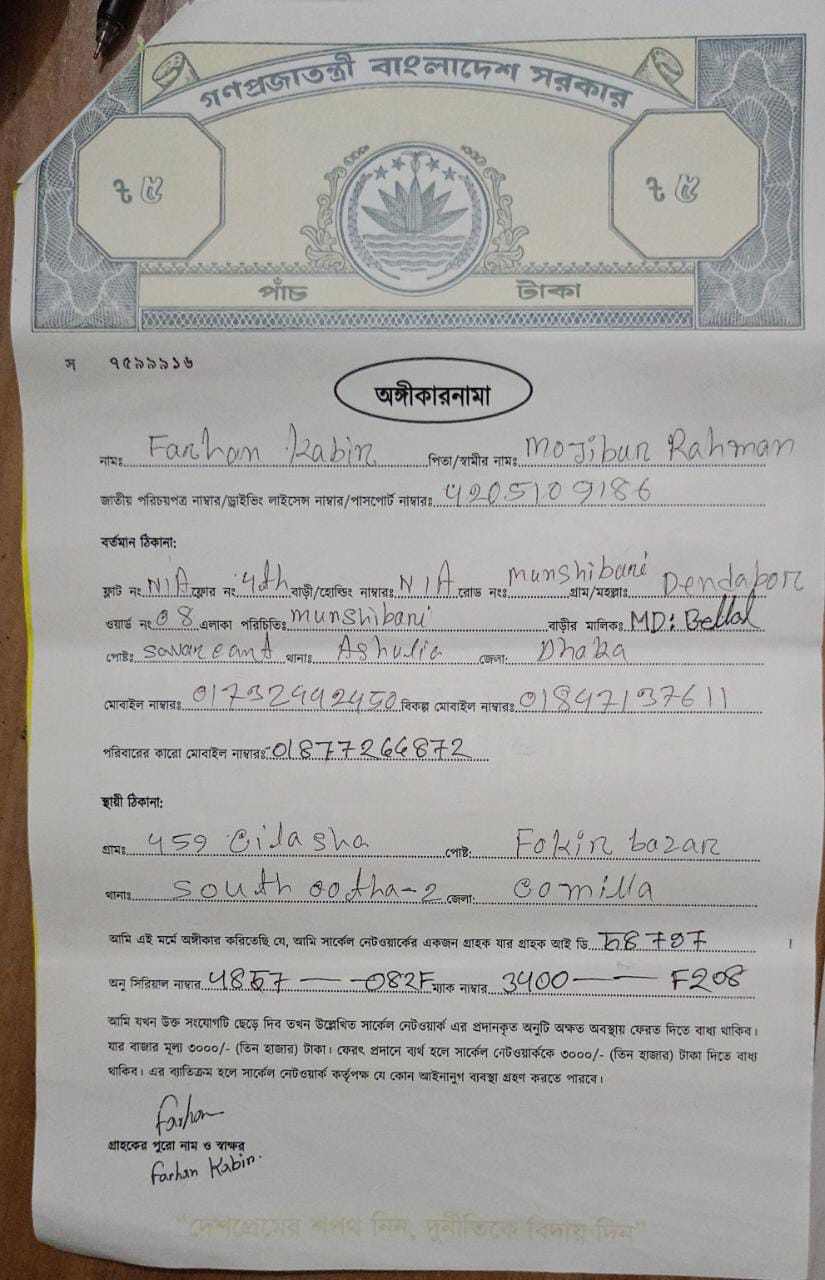 গণপ্রজাতন্ত্রী বাংলাদেশ সরকার
৳ ৫ ৳ ৫
পাঁচ টাকা
স ৭৫৯৯৯১৬
অঙ্গীকারনামা
নামঃ Farhan Kabir পিতা/স্বামীর নামঃ Mojibur Rahman
জাতীয় পরিচয়পত্র নাম্বার/ড্রাইভিং লাইসেন্স নাম্বার/পাসপোর্ট নাম্বারঃ 4205109186
বর্তমান ঠিকানা:
ফ্লাট নং N/A ফ্লোর নং 4th বাড়ী/হোল্ডিং নাম্বারঃ N/A রোড নংঃ munshibari গ্রাম/মহল্লাঃ Dendabor
ওয়ার্ড নং 08 এলাকা পরিচিতিঃ munshibari বাড়ীর মালিকঃ MD: Bellal
পোষ্টঃ savar cant থানাঃ Ashulia জেলা: Dhaka
মোবাইল নাম্বারঃ 01732492450 বিকল্প মোবাইল নাম্বারঃ 01847137611
পরিবারের কারো মোবাইল নাম্বারঃ 01877266872
স্থায়ী ঠিকানা:
গ্রামঃ 459 পোষ্ট: Fokir bazar
থানাঃ south জেলা: Comilla
আমি এই মর্মে অঙ্গীকার করিতেছি যে, আমি সার্কেল নেটওয়ার্কের একজন গ্রাহক যার গ্রাহক আই ডি
অনু সিরিয়াল নাম্বার — -082F ম্যাক নাম্বার 3400 — F208
আমি যখন উক্ত সংযোগটি ছেড়ে দিব তখন উল্লেখিত সার্কেল নেটওয়ার্ক এর প্রদানকৃত অনুটি অক্ষত অবস্থায় ফেরত দিতে বাধ্য থাকিব।
যার বাজার মূল্য ৩০০০/- (তিন হাজার) টাকা। ফেরৎ প্রদানে ব্যর্থ হলে সার্কেল নেটওয়ার্ককে ৩০০০/- (তিন হাজার) টাকা দিতে বাধ্য
থাকিব। এর ব্যতিক্রম হলে সার্কেল নেটওয়ার্ক কর্তৃপক্ষ যে কোন আইনানুগ ব্যবস্থা গ্রহণ করতে পারবে।
Farhan
গ্রাহকের পুরো নাম ও স্বাক্ষর
Farhan Kabir.
"দেশপ্রেমের শপথ নিন, দুর্নীতিকে বিদায় দিন"